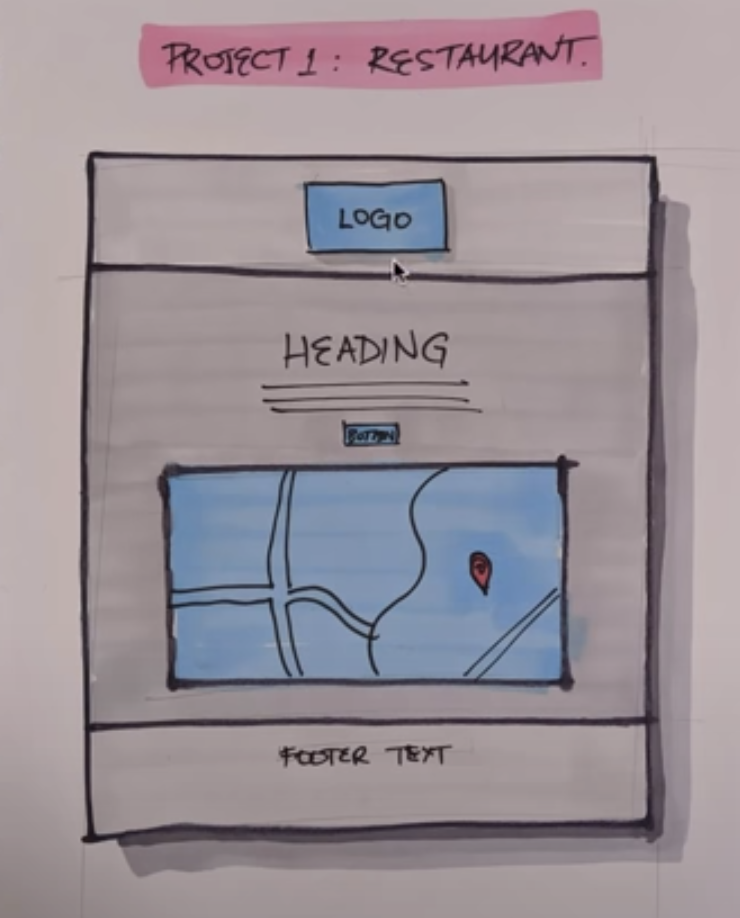 PROJECT 1: RESTAURANT.
LOGO
HEADING
BUTTON
FOOTER TEXT